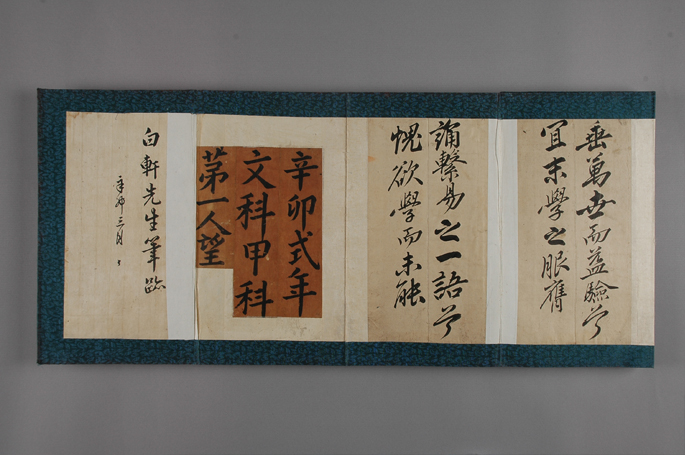 垂萬世而益驗兮
宜末學之服膺
誦繫易之一語兮
愧欲學而未能
辛卯式年
文科甲科
第一人望
白軒先生筆跡
辛卯三月